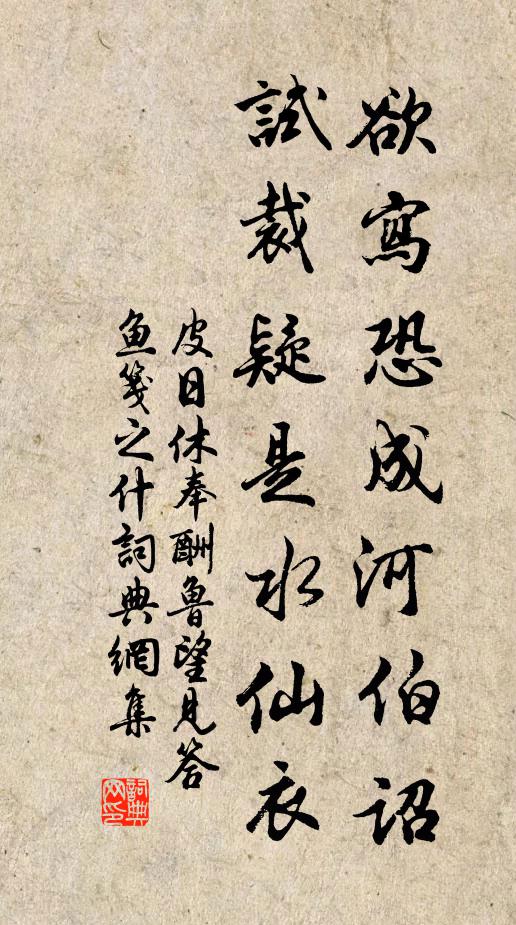 欲寫恐成河伯詔
試裁疑是水仙衣
皮日休奉酬魯望見答
魚箋之什詞典網集
詞典網印